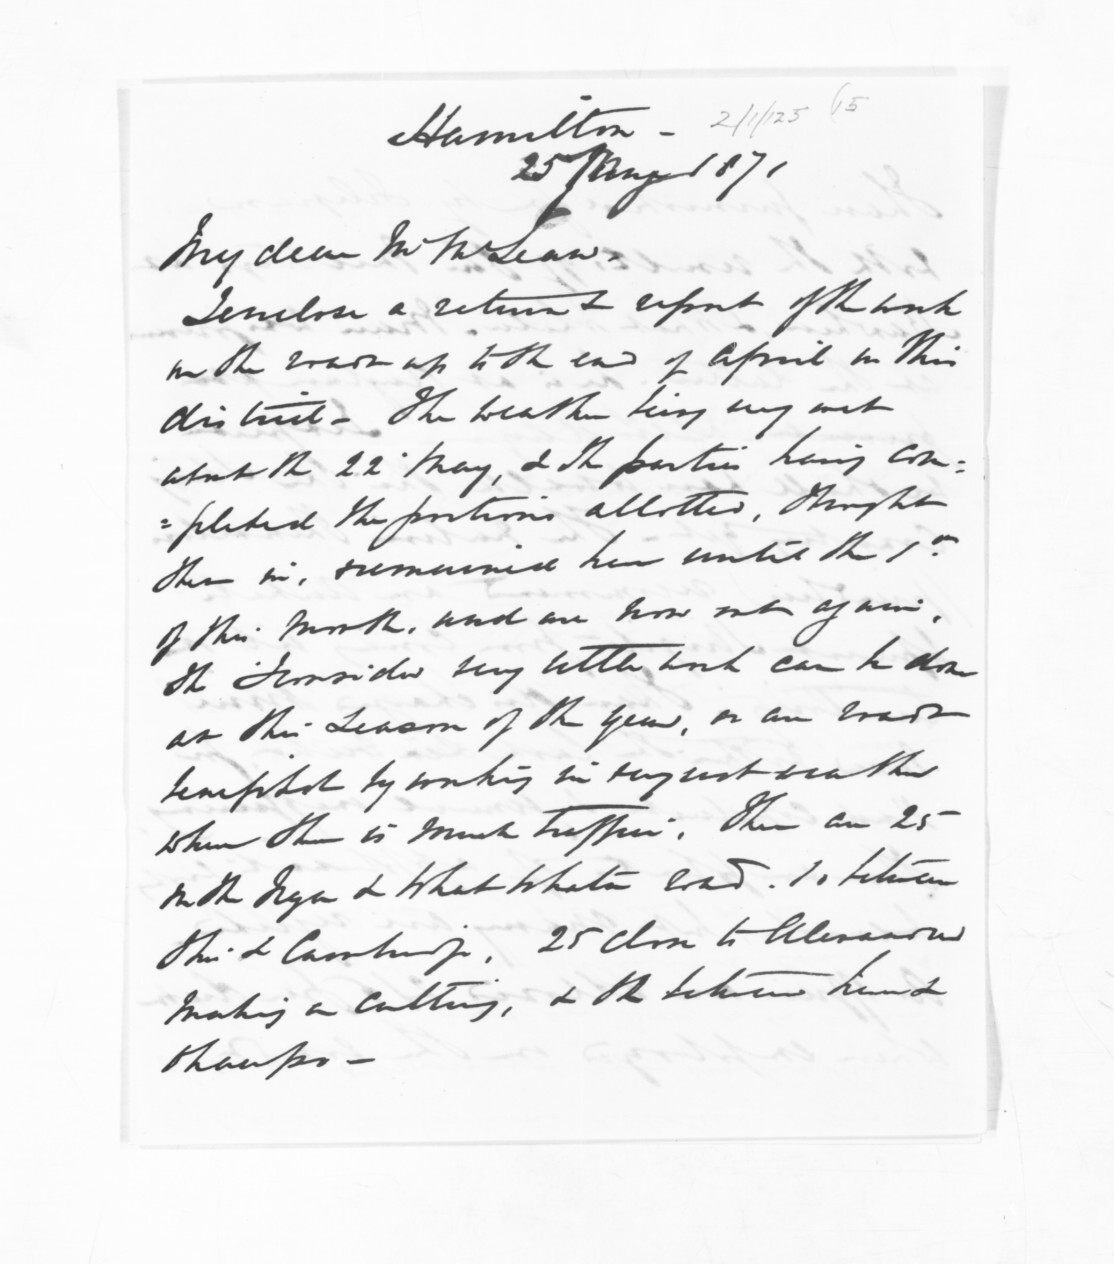 Hamilton - 2/1/125 (15
25 May 1871
My dear Mr McLean.
I enclose a return & report of the work
on the roads up to the end of April in this
district - The weather being very wet
about the 22 May, & the parties having com=
=pleted the portions allotted, thought
them in, remained here until the 1st
of this month, and are now out again,
I consider very little work can be done
at this season of the year, as our roads
by working in very wet weather
when there is much traffic. There are 25
on the Ngar & Whatawhata road. 10 between
this & Cambridge, 25 close to Alexandra
making a cutting, & the between here &
Ohaupo -